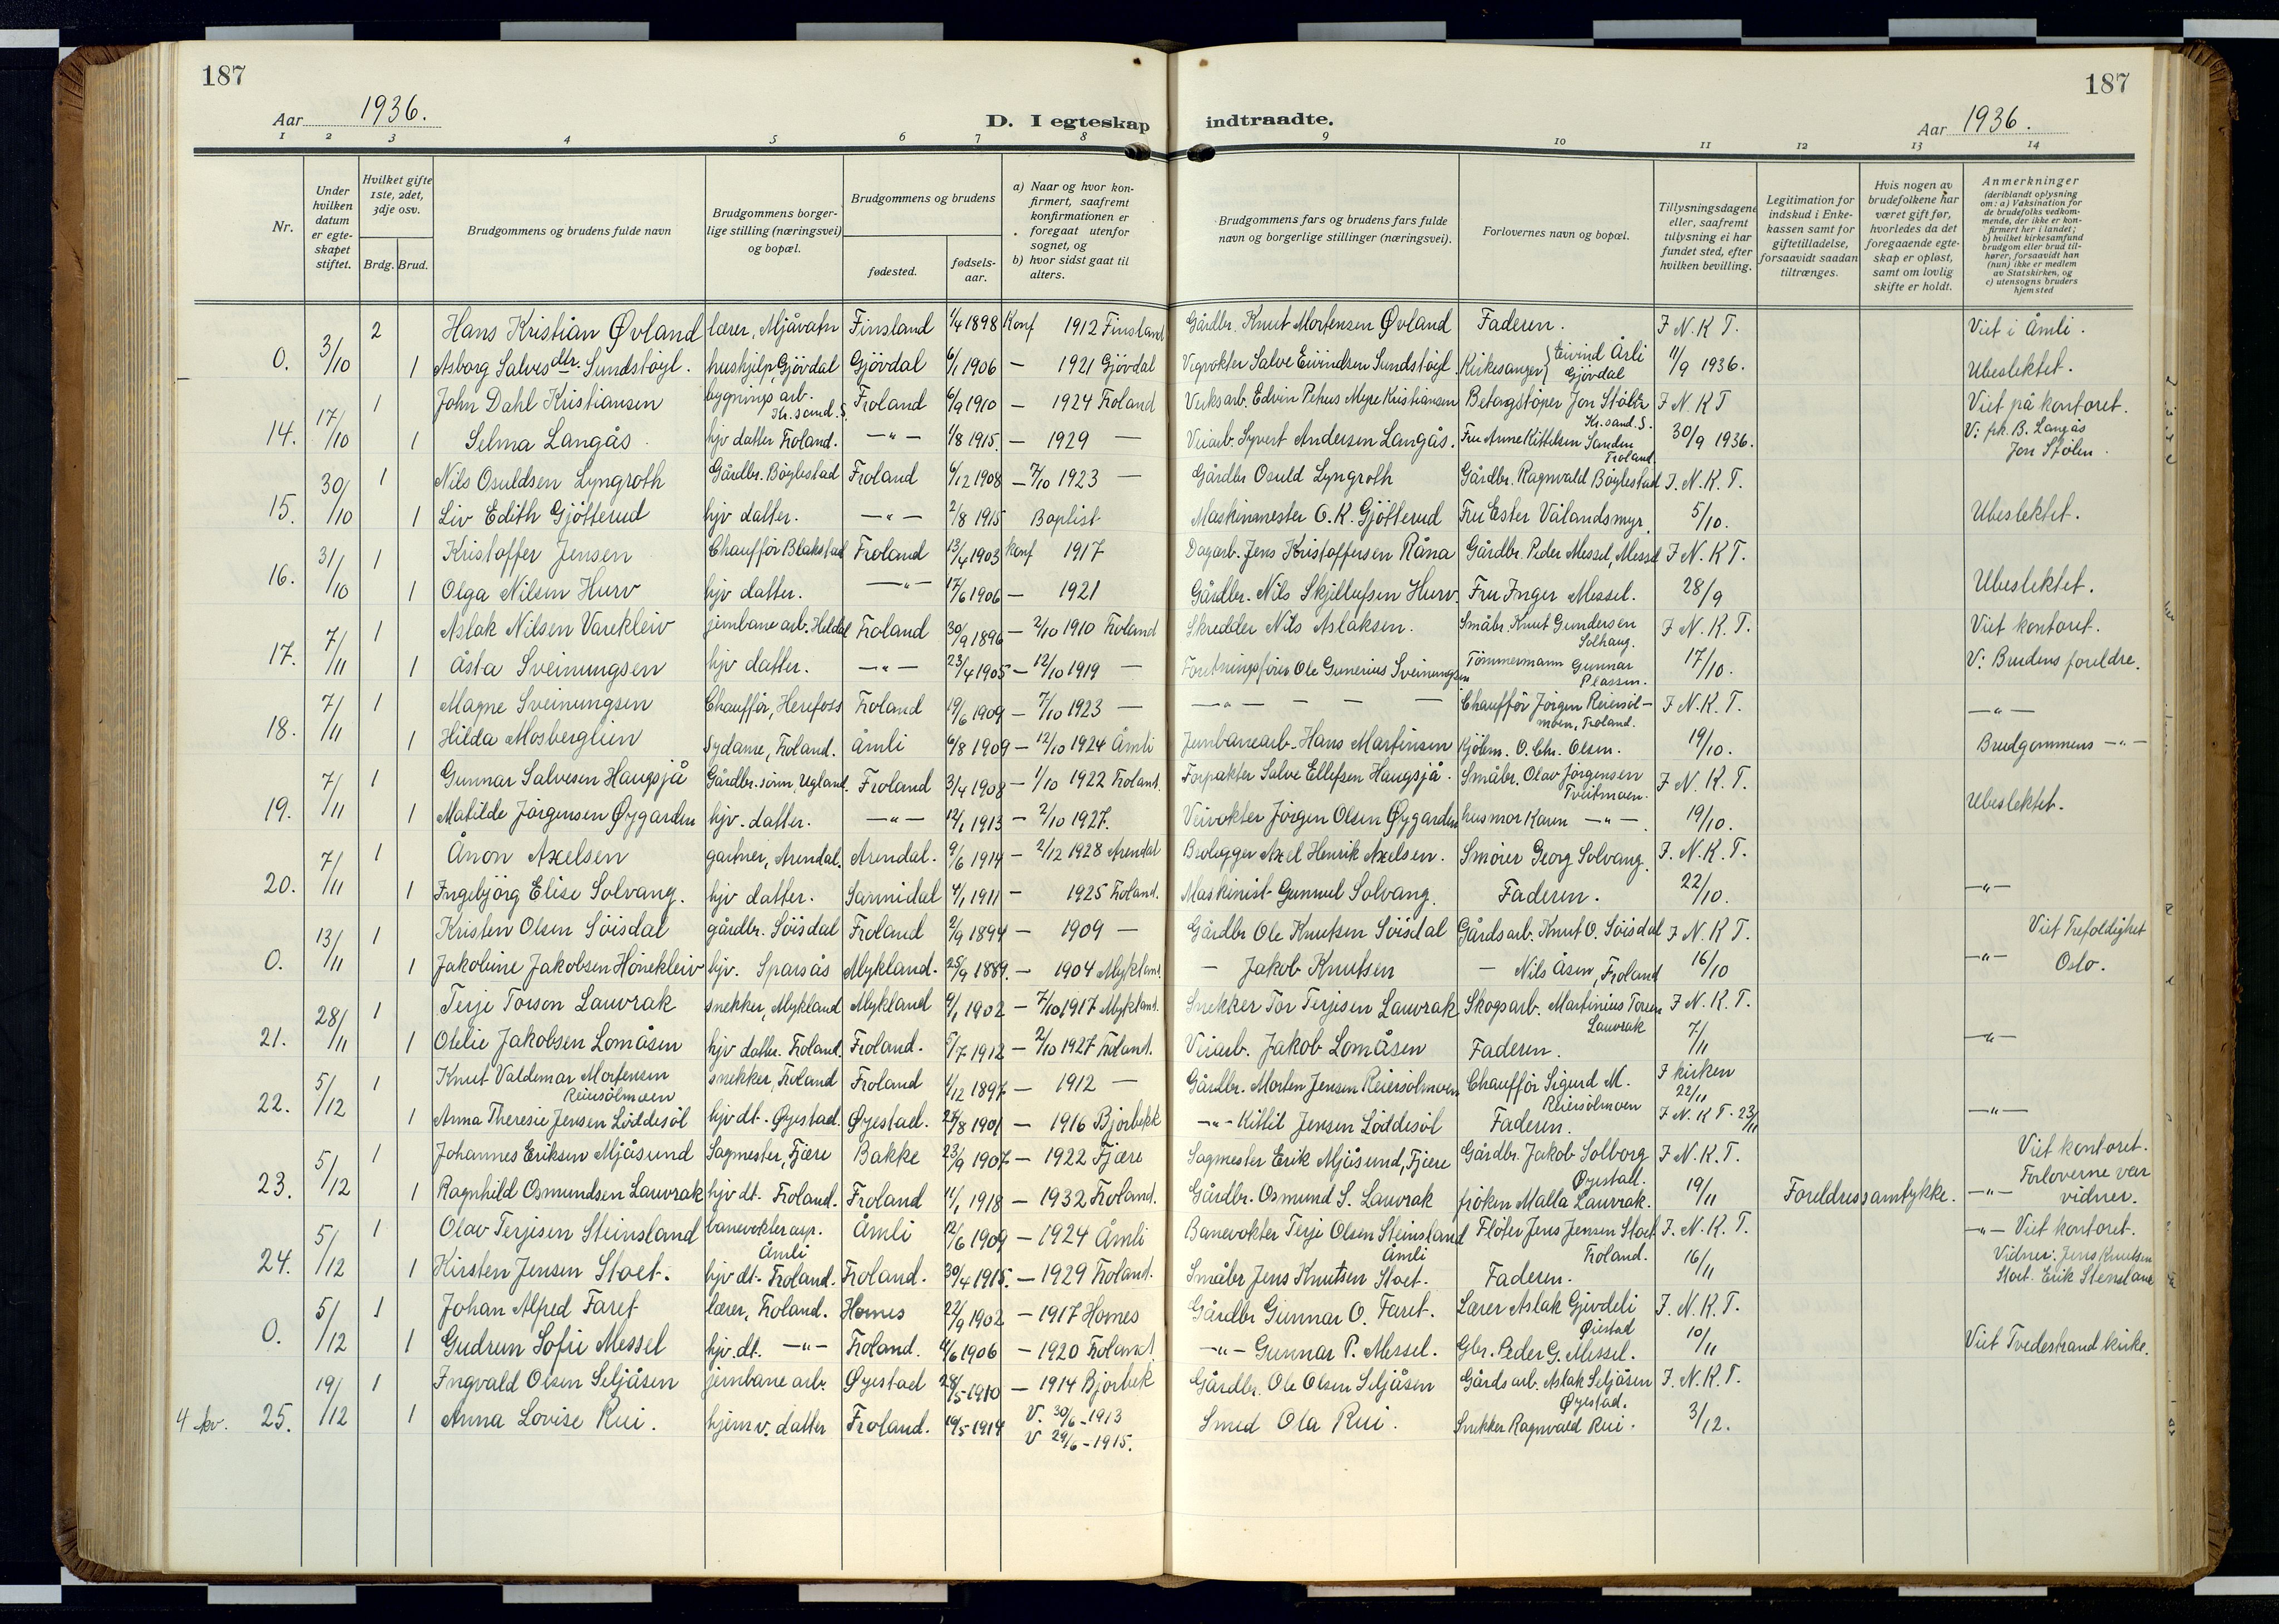 187
187
Aar 1936.
D. I egteskap
indtraadte.
Aar 1936.
1 2 3 4 5 6 7 8 9 10 11 12 13 14
Nr.
Under hvilken datum er egteskapet stiftet.
Hvilket gifte 1ste, 2det, 3dje osv.
Brdg. Brud.
Brudgommens og brudens fulde navn
Brudgommens borgerlige stilling (næringsvei) og bopæl.
Brudgommens og brudens
fødested.
fødselsaar.
a) Naar og hvor konfirmert, saafremt konfirmationen er foregaat utenfor sognet, og
b) hvor sidst gaat til alters.
Brudgommens fars og brudens fars fulde navn og borgerlige stillinger (næringsvei).
Forlovernes navn og bopæl.
Tillysningsdagene eller, saafremt tillysning ei har fundet sted, efter hvilken bevilling.
Legitimation for indskud i Enkekassen samt for giftetilladelse, forsaavidt saadan tiltrænges.
Hvis nogen av brudefolkene har været gift før, hvorledes da det foregaaende egteskap er opløst, samt om lovlig skifte er holdt.
Anmerkninger
(deriblandt oplysning om: a) Vaksination for de brudefolks vedkommende, der ikke er konfirmert her i landet; b) hvilket kirkesamfund brudgom eller brud tilhører, forsaavidt han (hun) ikke er medlem av Statskirken, og c) utensogns bruders hjemsted
0. 3/10 2 Hans Kristian Øvland lærer, Mjåvatn Finsland 1/4 1898 Konf 1912 Finsland Gårdbr. Knut Mortensen Øvland Faderen. J N. K T. Viet i Åmli.
1 Asborg Salvesdtr. Sundstøyl. hushjelp, Gjövdal Gjövdal 6/1 1906 — 1921 Gjövdal Vegvokter Salve Eivindsen Sundstøyl Kirkesanger Eivind Årli Gjövdal 11/9 1936. Ubeslektet.
14. 17/10 1 John Dahl Kristiansen bygningsarb. Kr. sand. S. Froland 6/9 1910 — 1924 Froland Verksarb. Edvin Petrus Myre Kristiansen Betongstöper Jon Stölen Kr. sand. S. J N. K T Viet på kontoret.
1 Selma Langås hjv datter Froland. —"— 1/8 1915. — 1929 — Veiarb. Syvert Andersen Langås. Fru Anne Kittelsen Sanden Froland 30/9 1936. V: frk. B. Langås Jon Stölen.
15. 30/10 1 Nils Osuldsen Lyngroth Gårdbr. Böylestad Froland 6/12 1908 — 7/10 1923 — Gårdbr Osuld Lyngroth Gårdbr. Ragnvald Böylestad J. N. K. T.
1 Liv Edith Gjötterud hjv datter. —"— 2/8 1915 Baptist Maskinmester O. K. Gjötterud Fru Ester Vålandsmyr. 5/10. Ubeslektet.
16. 31/10 1 Kristoffer Jensen Chaufför Blakstad Froland 13/4 1903 Konf 1917 Dagarb. Jens Kristoffersen Råna Gårdbr. Peder Messel, Messel J N. K T.
1 Olga Nilsen Hurv hjv datter. —"— 17/6 1906 — 1921 Gårdbr. Nils Skjellufsen Hurv. Fru Inger Messel. 28/9 Ubeslektet.
17. 7/11 1 Aslak Nilsen Varekleiv jernbanearb. Heldal Froland 30/9 1896 — 2/10 1910 Froland Skredder Nils Aslaksen. Småbr. Knut Gundersen Solhaug. J N. K. T. Viet kontoret.
1 Åsta Sveinungsen hjv datter. —"— 23/4 1905 — 12/10 1919 — Foretningsförer Ole Gunerius Sveinungsen Tömmermann Gunnar Plassen. 17/10. V: Brudens foreldre.
18. 7/11 1 Magne Sveinungsen Chaufför, Herefoss Froland 19/6 1909 — 7/10 1923 — —"— — — — Chaufför Jörgen Reiersölmoen, Froland. J N. K. T. —"—
1 Hilda Mosberglien Sydame, Froland. Åmli 6/8 1909 — 12/10 1924 Åmli Jernbanearb. Hans Martinsen Kjölem. O. Chr. Olsen. 19/10. Brudgommens —"—
19. 7/11 1 Gunnar Salvesen Haugsjå Gårdbr. sönn, Ugland. Froland 3/4 1908 — 1/10 1922 Froland. Forpakter Salve Ellefsen Haugsjå. Småbr. Olav Jörgensen Tveitmoen. J N. K. T.
1 Matilde Jörgensen Øygarden hjv. datter. —"— 12/1 1913 — 2/10 1927. Veivokter Jörgen Olsen Øygarden husmor Karen —"—. 19/10. Ubeslektet.
20. 7/11 1 Ånon Axelsen gartner, Arendal. Arendal. 9/6 1914 — 2/12 1928 Arendal Brolegger Axel Henrik Axelsen. Smörer Georg Solvang. J. N. K. T.
1 Ingebjörg Elise Solvang. hjv datter. Sannidal 4/1 1911 — 1925 Froland. Maskinist Gunnvel Solvang. Faderen. 22/10. —"—
0. 13/11 1 Kristen Olsen Söisdal gårdbr. Söisdal Froland 2/9 1894 — 1909 — Gårdbr Ole Knutsen Söisdal Gårdsarb. Knut O. Söisdal J N. K T. Viet Trefoldighet
1 Jakobine Jakobsen Hönekleiv hjv. Sparsås Mykland. 25/9 1889. — 1904 Mykland. — Jakob Knutsen — Nils Åsen, Froland 16/10 —"— Oslo.
21. 28/11 1 Terje Torson Lauvrak snekker, Mykland Mykland 9/1 1902 — 7/10 1917 Mykland. Snekker Tor Terjesen Lauvrak Skogsarb. Martinius Torsen Lauvrak J N. K. T.
1 Otilie Jakobsen Lomåsen hjv datter. Froland. Froland. 5/7 1912 — 2/10 1927 Froland. Veiarb. Jakob Lomåsen Faderen. 7/11 —"—
22. 5/12 1 Knut Valdemar Mortensen Reiersölmoen snekker, Froland Froland 1/12 1897 — 1912 — Gårdbr. Morten Jensen Reiersölmoen Chaufför Sigurd M. Reiersölmoen I kirken 22/11
1 Anna Theresie Jensen Löddesöl hjv dt. Øyestad. Øyestad. 24/8 1901 — 1916 Bjorbekk —"— Kittil Jensen Löddesöl Faderen. J N. K T. 23/11 —"—
23. 5/12 1 Johannes Eriksen Mjåsund Sagmester, Fjære Bakke 23/9 1907 — 1922 Fjære Sagmester Erik Mjåsund, Fjære Gårdbr. Jakob Solborg Øyestad. J N. K. T. Viet kontoret. Forloverne var
1 Ragnhild Osmundsen Lauvrak hjv dt. Froland. Froland 11/1 1918 — 1932 Froland. Gårdbr. Osmund S. Lauvrak fröken Malla Lauvrak. 19/11 Foreldres samtykke. —"— vidner.
24. 5/12 1 Olav Terjesen Steinsland banevokterasp. Åmli Åmli 12/6 1909 — 1924 Åmli Banevokter Terje Olsen Steinsland Åmli Fløter Jens Jensen Stoet Froland. J. N. K. T. —"— Viet kontoret.
1 Kirsten Jensen Stoet. hjv dt. Froland. Froland. 30/4 1915. — 1929 Froland. Småbr Jens Knutsen Stoet. Faderen. 16/11 Vidner: Jens Knutsen Stoet. Erik Stensland
0. 5/12 1 Johan Alfred Faret lærer, Froland. Homes 22/9 1902 — 1917 Homes Gårdbr Gunnar O. Faret. Lærer Aslak Gjevdeli Øiestad J. N. K. T.
1 Gudrun Sofie Messel hjv. dt. —"— Froland. 11/6 1906 — 1920 Froland. —"— Gunnar P. Messel. Gbr. Peder G. Messel. 10/11 Viet Tvedestrand kirke.
25. 19/12 1 Ingvald Olsen Seljåsen jernbanearb. Øyestad 28/5 1910 — 1914 Bjorbek Gårdbr. Ole Olsen Seljåsen Gårdsarb. Aslak Seljåsen Øyestad. J. N. K. T.
4 kv. 1 Anna Lovise Rui. hjemv. datter Froland. 19/5 1914 V. 30/6 - 1913 Smed Ola Rui. Snekker Ragnvald Rui. 3/12.
V 29/6 - 1915.